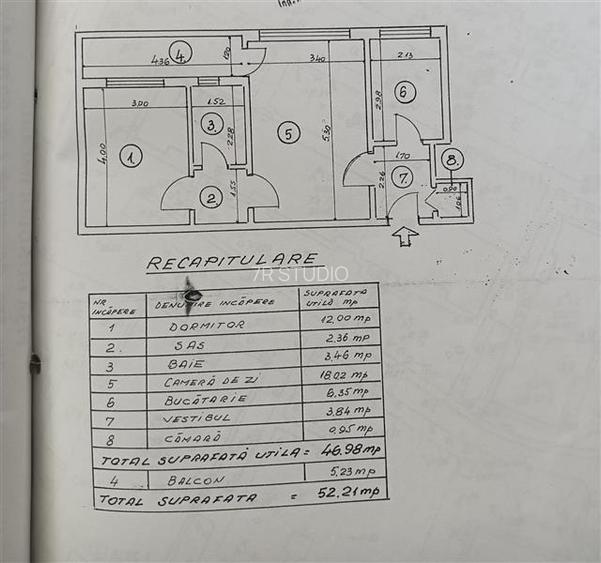 4.36
4
120
3.40
2.13
3.00
1.52
2.98
6
3
2.28
5
5.30
4.00
1
1.70
8
2
1.55
2.26
7
0.90
1.06
RECAPITULARE
7R STUDIO
NR. INCĂPERE DENUMIRE INCĂPERE SUPRAFAȚA UTILĂ mp
1 DORMITOR 12,00 mp
2 SAS 2.36 mp
3 BAIE 3,46 mp
5 CAMERĂ DE ZI 18,02 mp
6 BUCĂTARIE 6,35 mp
7 VESTIBUL 3,84 mp
8 CĂMARĂ 0,95 mp
TOTAL SUPRAFATĂ UTILĂ = 46.98 mp
4 BALCON 5,23 mp
TOTAL SUPRAFATA = 52.21 mp